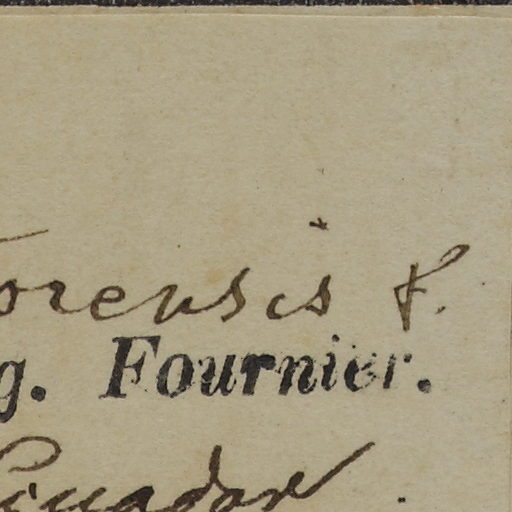 orensis f.
g. Fournier.
Ecuador.